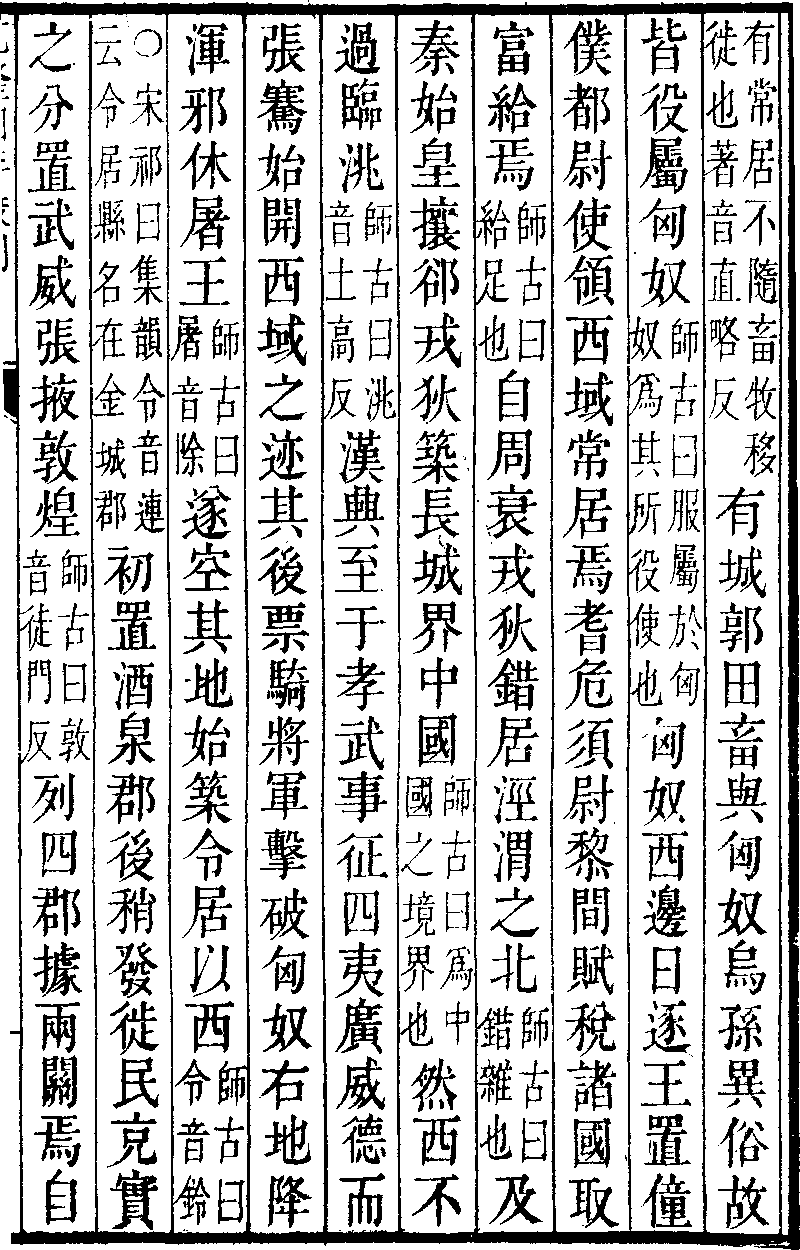 有常居不隨畜牧移徙也著音直略反有城郭田畜與匈奴烏孫異俗故
皆役屬匈奴師古曰服屬於匈奴爲其所役使也匈奴西邊日逐王置僮
僕都尉使領西域常居焉耆危須尉黎間賦稅諸國取
富給焉師古曰給足也自周衰戎狄錯居涇渭之北師古曰錯雜也及
秦始皇攘卻戎狄築長城界中國師古曰爲中國之境界也然西不
過臨洮師古曰洮音土高反漢興至于孝武事征四夷廣威德而
張騫始開西域之迹其後票騎將軍擊破匈奴右地降
渾邪休屠王師古曰屠音除遂空其地始築令居以西師古曰令音鈴
○宋祁曰集韻令音連云令居縣名在金城郡初置酒泉郡後稍發徙民充實
之分置武威張掖敦煌師古曰敦音徒門反列四郡據兩關焉自